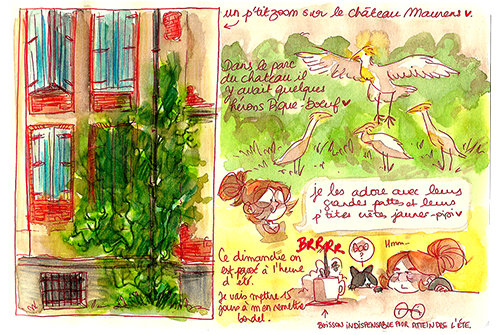 un p'tit zoom sur le château Maurens ♥.
Dans le parc
du château il
y avait quelques
hérons Pique-boeuf ♥
je les adore avec leurs
grandes pattes et leurs
p'tites crêtes jaunes-pipi ♥
Ce dimanche on
est passé à l'heure
d'été.
Je vais mettre 15
jours à m'en remettre
bordel.
BRRRR
?
Hmm...
BOISSON INDISPENSABLE POUR ATTEINDRE L'ÉTÉ.